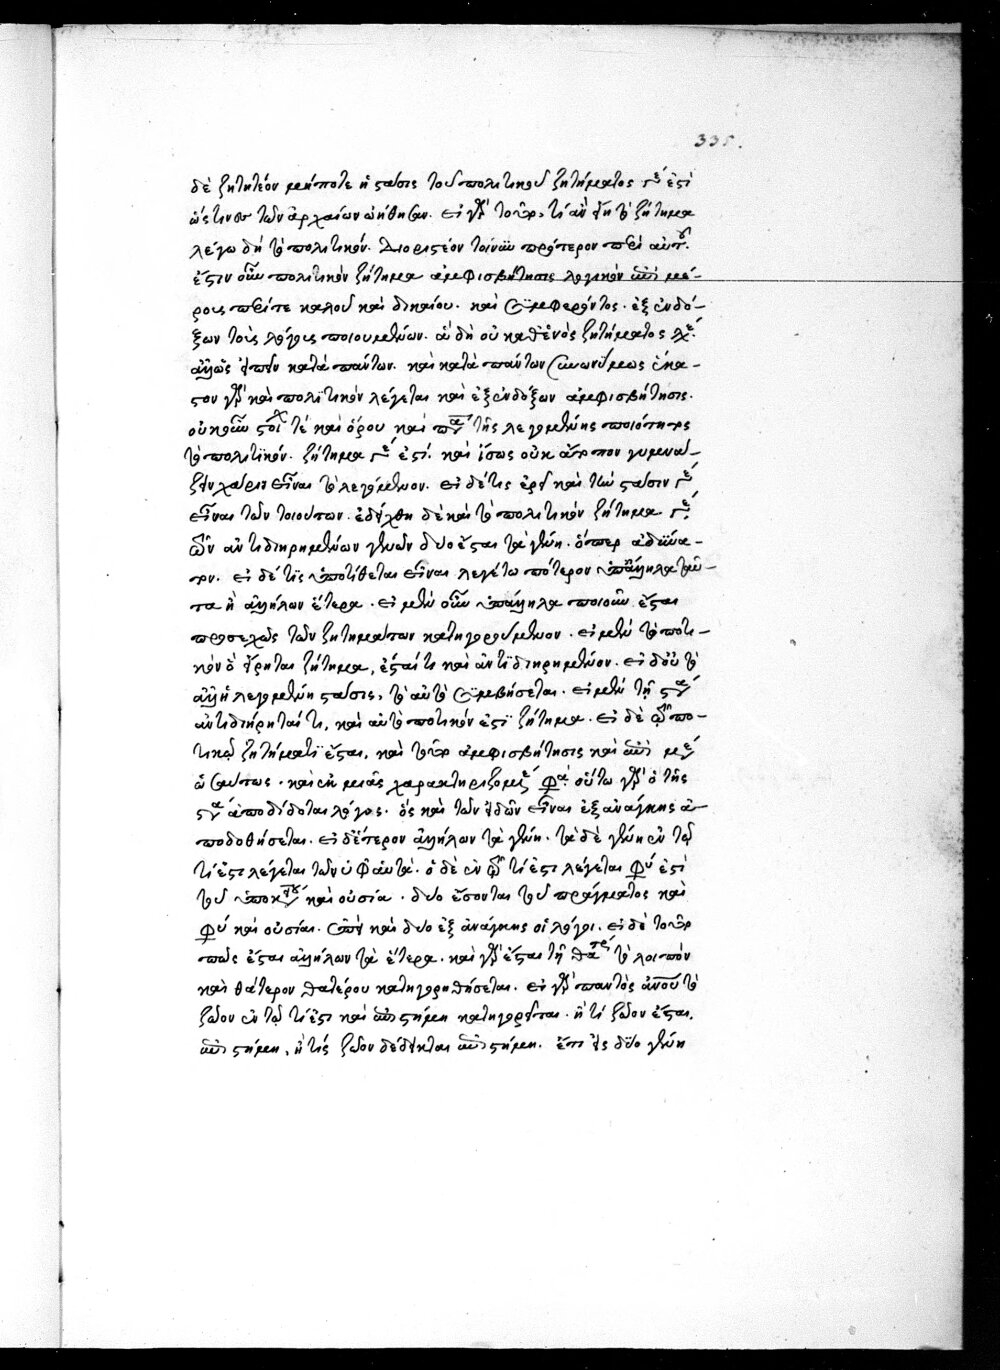 335.
δὲ ζητητέον μήποτε ἡ στάσις τοῦ πολιτικοῦ ζητήματος γέ ἐστὶ
ὥς τινα τῶν ἀρχαίων ᾠήθησαν. εἰ γὰρ τοῦτο, τί ἂν εἴη τὸ ζήτημα
λέγω δὴ τὸ πολιτικόν. Διοριστέον τοίνυν πρότερον περὶ αὐτοῦ.
ἔστιν οὖν πολιτικὸν ζήτημα ἀμφισβήτησις λογικὸν ἐπὶ μέ-
ρους περί τε καλοῦ καὶ δικαίου. καὶ συμφέροντος. ἐξ ἐνδό-
ξων τοὺς λόγους ποιουμένων. ἃ δὴ οὐ καθενὸς ζητήματος λέ
ἁπλῶς εἰπεῖν κατὰ πάντων. καὶ κατὰ πάντων συνωνύμως ἕκα-
στον γὰρ καὶ πολιτικὸν λέγεται καὶ ἐξ ἐνδόξων ἀμφισβήτησις.
οὐκοῦν καὶ ὅρου καὶ τῆς λεγομένης ποιότητος
τὸ πολιτικὸν. ζήτημα γέ ἐστί. καὶ ἴσως οὐκ ἄτοπον γυμνα-
χάριν εἶναι τὸ λεγόμενον. εἰ δέ τις ἐρεῖ καὶ τὴν στάσιν γέ
εἶναι τῶν τοιούτων. ἐδείχθη δὲ καὶ τὸ πολιτικὸν ζήτημα γέ.
ὧν ἀντιδιῃρημένων γενῶν δύο ἔσται τὰ γένη. ὅπερ ἀδύνα-
τον. εἰ δέ τις ὑποτίθεται εἶναι λεγέτω πότερον ὑπάλληλα ταῦ-
τα ἢ ἀλλήλων ἕτερα. εἰ μὲν οὖν ὑπάλληλα ποιοῦν ἔσται
προσεχῶς τῶν ζητημάτων κατηγορούμενον. εἰ μὲν τὸ ποτι-
κὸν ὃ εἴρηται ζήτημα, ἔσται τι καὶ ἀντιδιῃρημένον. εἰ δ' οὖ τὸ
ἁπλῆ λεγομένη στάσις, τὸ αὐτὸ συμβήσεται. εἰ μὲν τῇ
ἀντιδιῄρηταί τι, καὶ αὐτὸ ποτικόν ἐστὶ ζήτημα. εἰ δὲ
τικῷ ζητήματι ἔσται, καὶ τοῦτο ἀμφισβήτησις καὶ ἐπὶ μέ
ὡσαύτως. καὶ ἐκ μιᾶς χαρακτηρίζομεν οὕτω γὰρ ὁ τῆς
ἀποδίδοται λόγος. ὃς καὶ τῶν εἰδῶν εἶναι ἐξ ἀνάγκης ἀ-
ποδοθήσεται. εἰ δ' ἕτερον ἀλλήλων τὰ γένη. τὰ δὲ γένη ἐν τῷ
τί ἐστι λέγεται τῶν ὑφ' αὑτά. ὁ δὲ ἐν ᾧ τί ἐστι λέγεται ἐστὶ
τοῦ καὶ οὐσία. δύο ἔσονται τοῦ πράγματος καὶ
καὶ οὐσίαι. καὶ δύο ἐξ ἀνάγκης οἱ λόγοι. εἰ δὲ τοῦτο
πῶς ἔσται ἀλλήλων τὰ ἕτερα. καὶ γὰρ ἔσται τῇ τὸ λοιπὸν
καὶ θάτερον θατέρου κατηγορηθήσεται. εἰ γὰρ παντὸς ἀνοῦ τὸ
ζῶον ἐν τῷ τί ἐστι καὶ ἐπιστήμη κατηγορεῖται. ἤ τι ζῶον ἔσται
ἐπιστήμη, ἤ τις ζῶον δέδεικται ἐπιστήμη. ἔτι εἰς δύο γένη